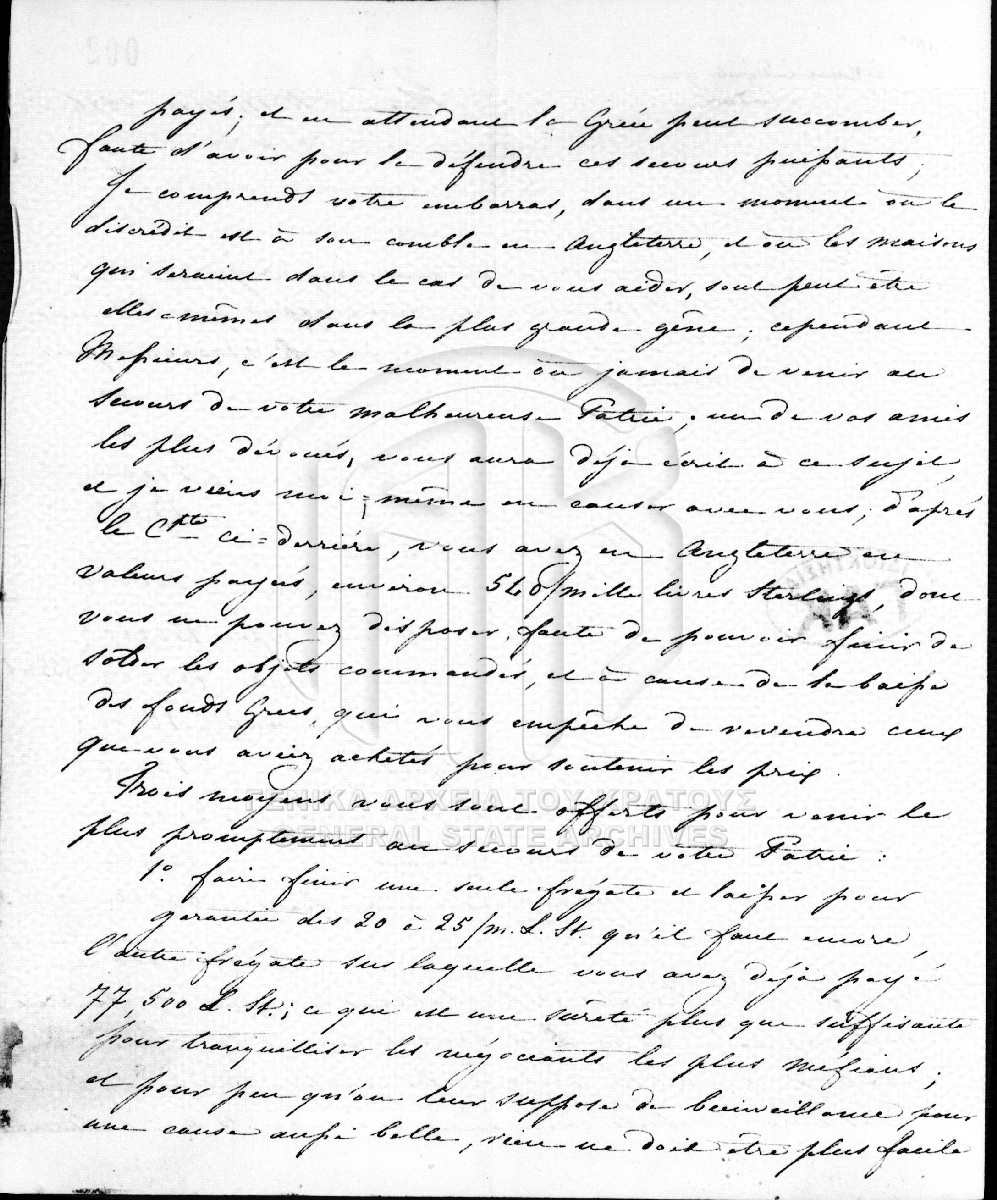 002
payés; et en attendant la Grèce peut succomber,
faute d'avoir pour la défendre ces secours puissants;
Je comprends votre embarras, dans un moment où le
discrédit est à son comble en Angleterre, et où les maisons
qui seraient dans le cas de vous aider, sont peut être
elles=mêmes dans la plus grande gêne; cependant
Messieurs, c'est le moment ou jamais de venir au
secours de votre malheureuse Patrie; un de vos amis
les plus dévoués, vous aura déja écrit à ce sujet,
et je viens moi=même en causer avec vous; d'après
le Cpte ci=derrière, vous avez en Angleterre en
valeurs payées, environ 540/mille livres Sterlings, dont
vous ne pouvez disposer, faute de pouvoir finir de
solder les objets commandés, et à cause de la baisse
des fonds Grecs, qui vous empêche de revendre ceux
que vous aviez achetés pour soutenir les prix.
ΓΕΝΙΚΑ ΑΡΧΕΙΑ ΤΟΥ ΚΡΑΤΟΥΣ
GENERAL STATE ARCHIVES
ΙΔΙΟΚΤΗΣΙΑ
Trois moyens vous sont offerts pour venir le
plus promptement au secours de votre Patrie:
1.° faire finir une seule frégate et laisser pour
garantie des 20 à 25/m. L. St. qu'il faut encore,
l'autre frégate sur laquelle vous avez déja payé
77,500 L. St.; ce qui est une sureté plus que suffisante
pour tranquilliser les négociants les plus méfians;
et pour peu qu'on leur suppose de bienveillance pour
une cause aussi belle, rien ne doit être plus facile